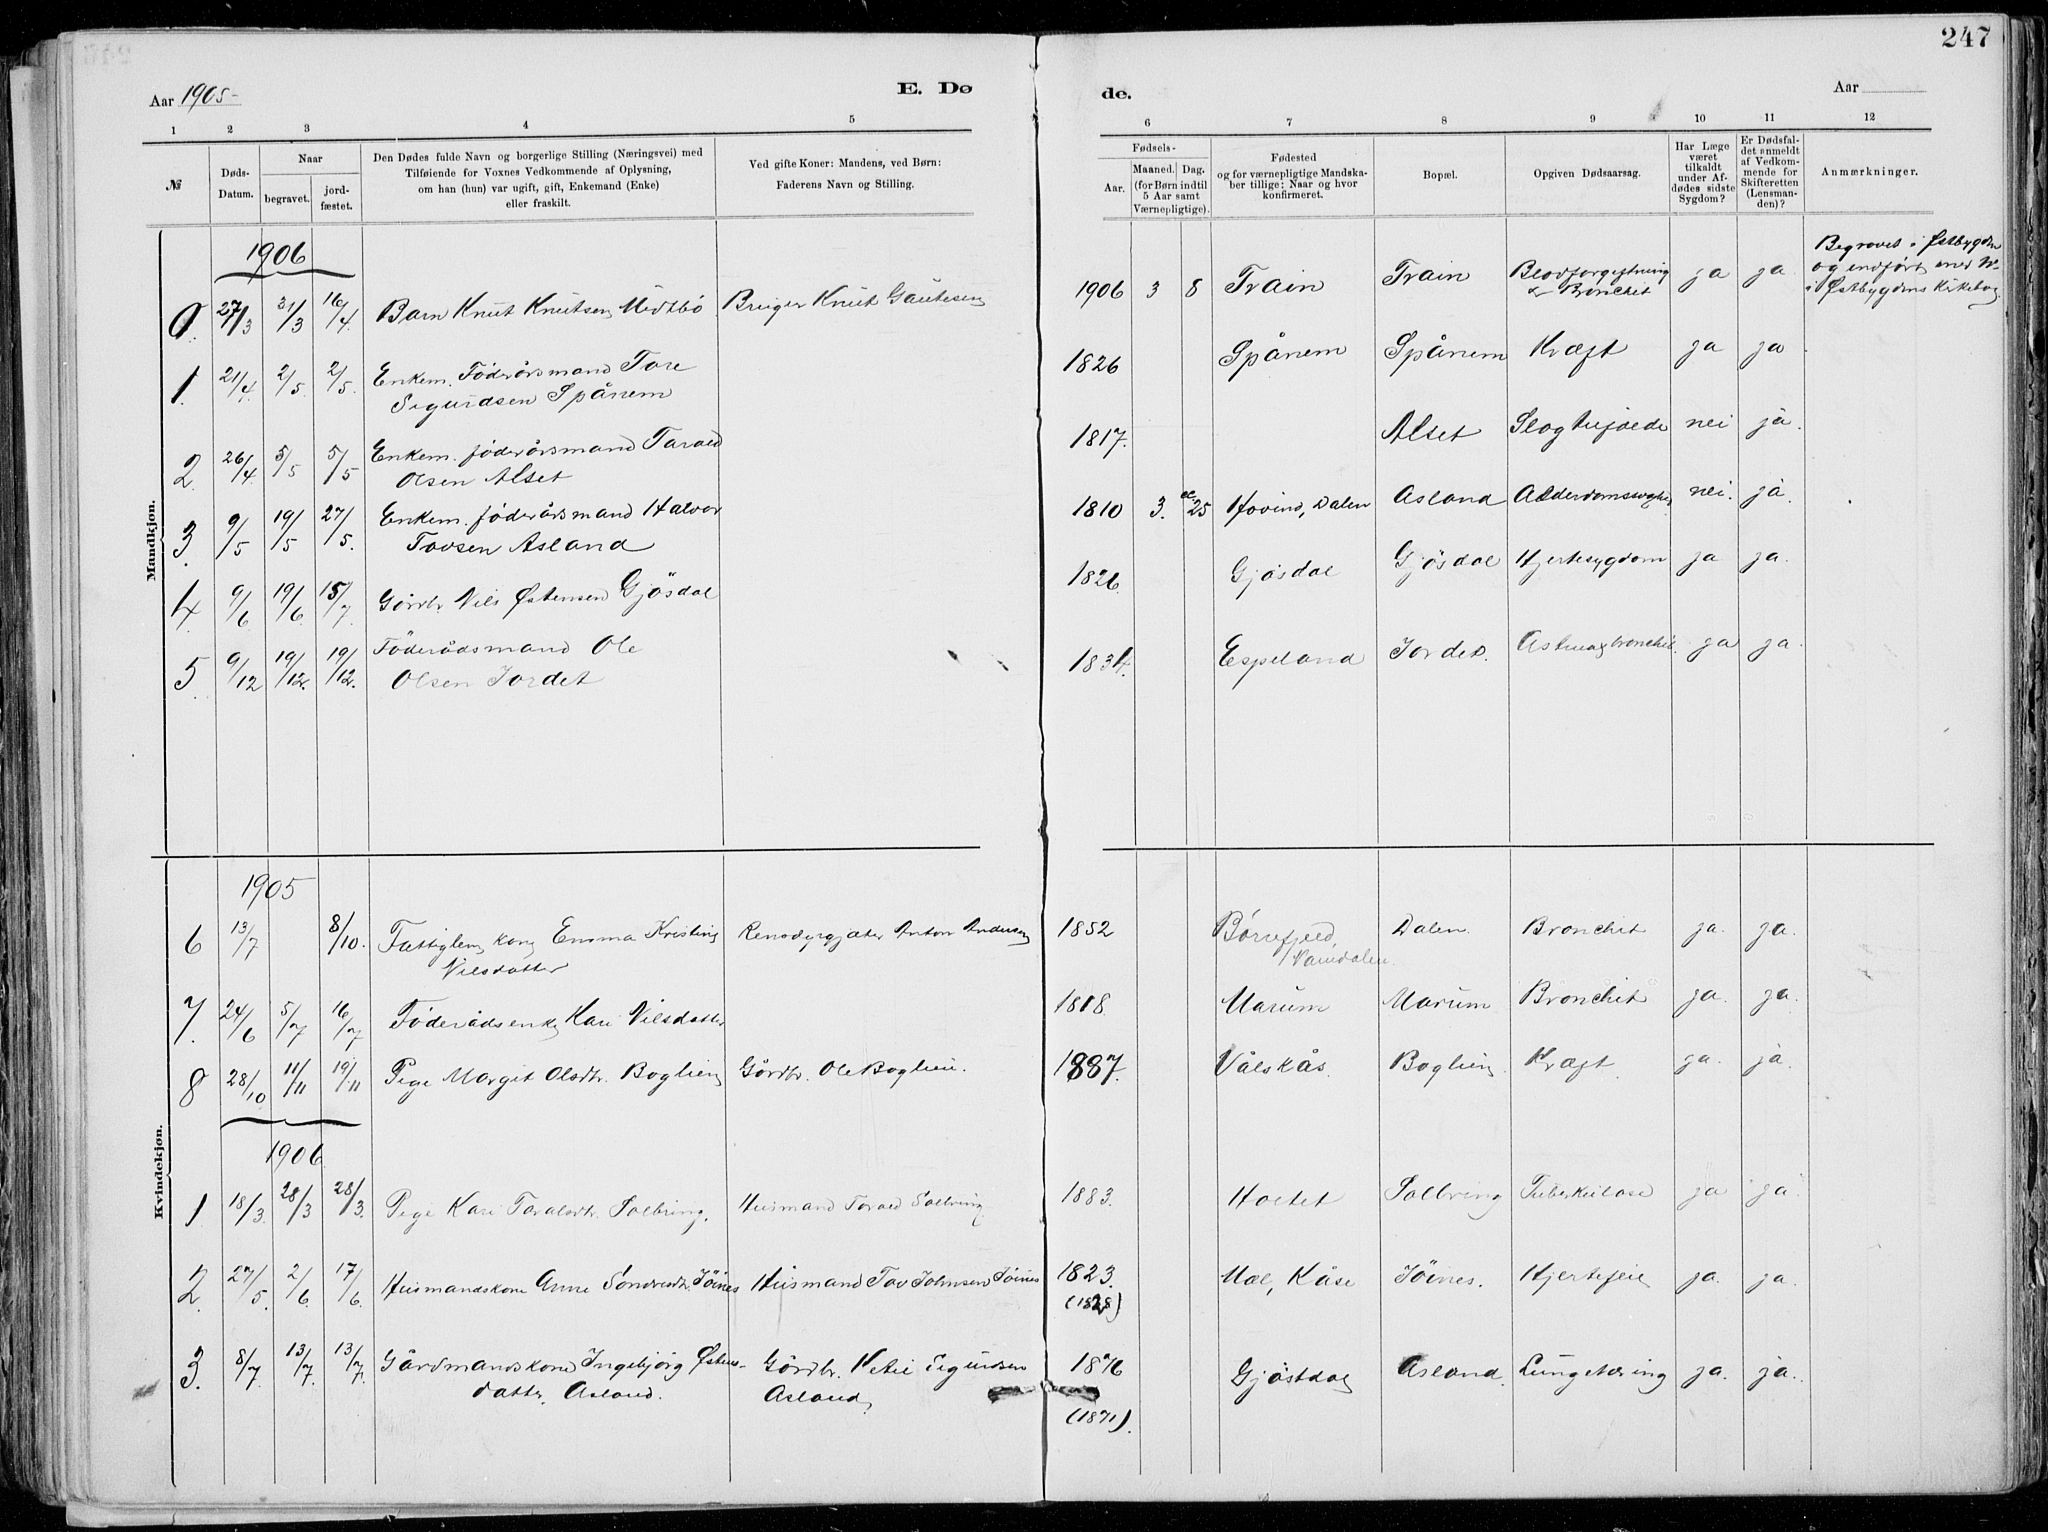 247
Aar 1905-
E. Dø
de.
Aar
1 2 3 4 5 6 7 8 9 10 11 12
№
Døds-
Datum.
Naar
begravet.
jord-
fæstet.
Den Dødes fulde Navn og borgerlige Stilling (Næringsvei) med
Tilføiende for Voxnes Vedkommende af Oplysning,
om han (hun) var ugift, gift, Enkemand (Enke)
eller fraskilt.
Ved gifte Koner: Mandens, ved Børn:
Faderens Navn og Stilling.
Fødsels-
Aar.
Maaned. Dag.
(for Børn indtil
5 Aar samt
Værnepligtige).
Fødested
og for værnepligtige Mandska-
ber tillige: Naar og hvor
konfirmeret.
Bopæl.
Opgiven Dødsaarsag.
Har Læge
været
tilkaldt
under Af-
dødes sidste
Sygdom?
Er Dødsfal-
det anmeldt
af Vedkom-
mende for
Skifteretten
(Lensman-
den)?
Anmærkninger.
Mandkjøn.
1906
0. 27/3 31/3 16/4. Barn Knut Knutsen Midtbö Bruger Knut Gautesen 1906 3 8 Train Train Blodforgiftning
& Bronchit ja ja
Begravet i Østbygden
og indført med №
i Østbygdens Kirkebog
1. 21/4. 2/5. 2/5. Enkem. Föderårsmand Tore
Sigurdsen Spånem 1826 Spånem Spånem Kræft ja ja
2. 26/4. 5/5 5/5 Enkem. föderårsmand Tarald
Olsen Alset 1817. Alset nei ja.
3. 9/5 19/5 27/5. Enkem. föderårsmand Halvor
Tovsen Asland 1810 3. 25 Hovind, Dalen Asland nei. ja.
4. 9/6 19/6. 15/7 Gårdbr. Nils Østensen Gjösdal 1826. Gjösdal Gjösdal Hjertesygdom ja ja.
5. 9/12 19/12. 19/12. Föderådsmand Ole
Olsen Jordet 1834. Espeland Jordet. ja ja.
Kvindekjøn.
1905
6 13/7 8/10. Fattiglem, kone Emma Kristine
Nilsdatter Rensdyrgjæter Anton Andersen 1852 Börgefjeld,
Namdalen. Dalen. Bronchit ja. ja.
7. 24/6 5/7 16/7 Föderådsenke Kari Nilsdatter 1818 Marum Marum Bronchit ja. ja.
8 28/10 11/11 19/11 Pige Margit Olsdtr. Boglien Gårdbr. Ole Boglien. 1887. Vålskås. Boglien Kræft ja. ja.
1906
1 18/3. 28/3 28/3. Pige Kari Taraldsdtr. Solbring. Husmand Tarald Solbring 1883. Holtet Solbring Tuberkulose ja ja.
2. 27/5. 2/6. 17/6. Husmandskone Anne Sondresdtr. Töines Husmand Tov Johnsen Töines 1823.
(1828) Mæl, Kåse Töines. Hjertefeil ja. ja.
3. 8/7 13/7. 13/7. Gårdmandskone Ingebjörg Østens-
datter Asland. Gårdbr. Ketil Sigurdsen
Asland 1876
(1871). Gjöstdal Asland. Lungetæring ja. ja.